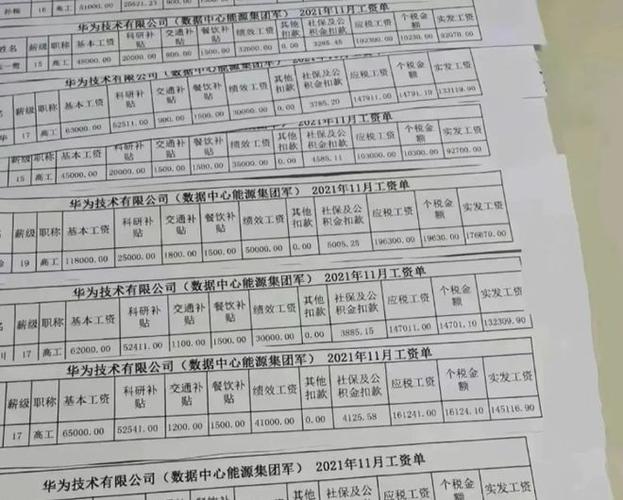 孙楠 16 高工 51000.00 25621.23 900.00 1500.00
华为技术有限公司（数据中心能源集团军） 2021年11月工资单
姓名 薪级 职称 基本工资 科研补贴 交通补贴 餐饮补贴 绩效工资 其他扣款 社保及公积金扣款 应税工资 个税金额 实发工资
15 高工 48000.00 20000.00 800.00 1500.00 32000.00 0.00 3285.45 102300.00 10230.00 92070.00
华为技术有限公司（数据中心能源集团军） 2021年11月工资单
薪级 职称 基本工资 科研补贴 交通补贴 餐饮补贴 绩效工资 其他扣款 社保及公积金扣款 应税工资 个税金额 实发工资
华 17 高工 63000.00 52511.00 900.00 1500.00 30000.00 0.00 3785.20 147911.00 14791.10 133119.90
华为技术有限公司（数据中心能源集团军） 2021年11月工资单
薪级 职称 基本工资 科研补贴 交通补贴 餐饮补贴 绩效工资 其他扣款 社保及公积金扣款 应税工资 个税金额 实发工资
15 高工 45000.00 20000.00 1500.00 1500.00 35000.00 0.00 4585.11 103000.00 10300.00 92700.00
华为技术有限公司（数据中心能源集团军） 2021年11月工资单
名 薪级 职称 基本工资 科研补贴 交通补贴 餐饮补贴 绩效工资 其他扣款 社保及公积金扣款 应税工资 个税金额 实发工资
19 高工 118000.00 25000.00 1800.00 1500.00 50000.00 0.00 5005.25 196300.00 19630.00 176670.00
华为技术有限公司（数据中心能源集团军） 2021年11月工资单
名 薪级 职称 基本工资 科研补贴 交通补贴 餐饮补贴 绩效工资 其他扣款 社保及公积金扣款 应税工资 个税金额 实发工资
川 17 高工 62000.00 52411.00 1100.00 1500.00 30000.00 0.00 3885.15 147011.00 14701.10 132309.90
华为技术有限公司（数据中心能源集团军） 2021年11月工资单
薪级 职称 基本工资 科研补贴 交通补贴 餐饮补贴 绩效工资 其他扣款 社保及公积金扣款 应税工资 个税金额 实发工资
17 高工 65000.00 52541.00 1200.00 1500.00 41000.00 0.00 4125.58 161241.00 16124.10 145116.90
华为技术有限公司（数据中心能源集团军） 2021年11月工资单